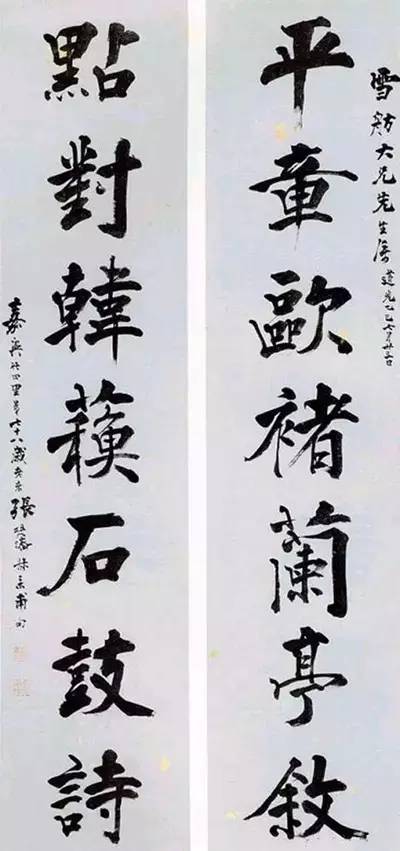 雪舫大兄先生屬 道光乙巳七月廿三日
平章歐褚蘭亭敘
點對韓蘇石鼓詩
嘉興竹田里 七十八歲 張廷濟叔未甫